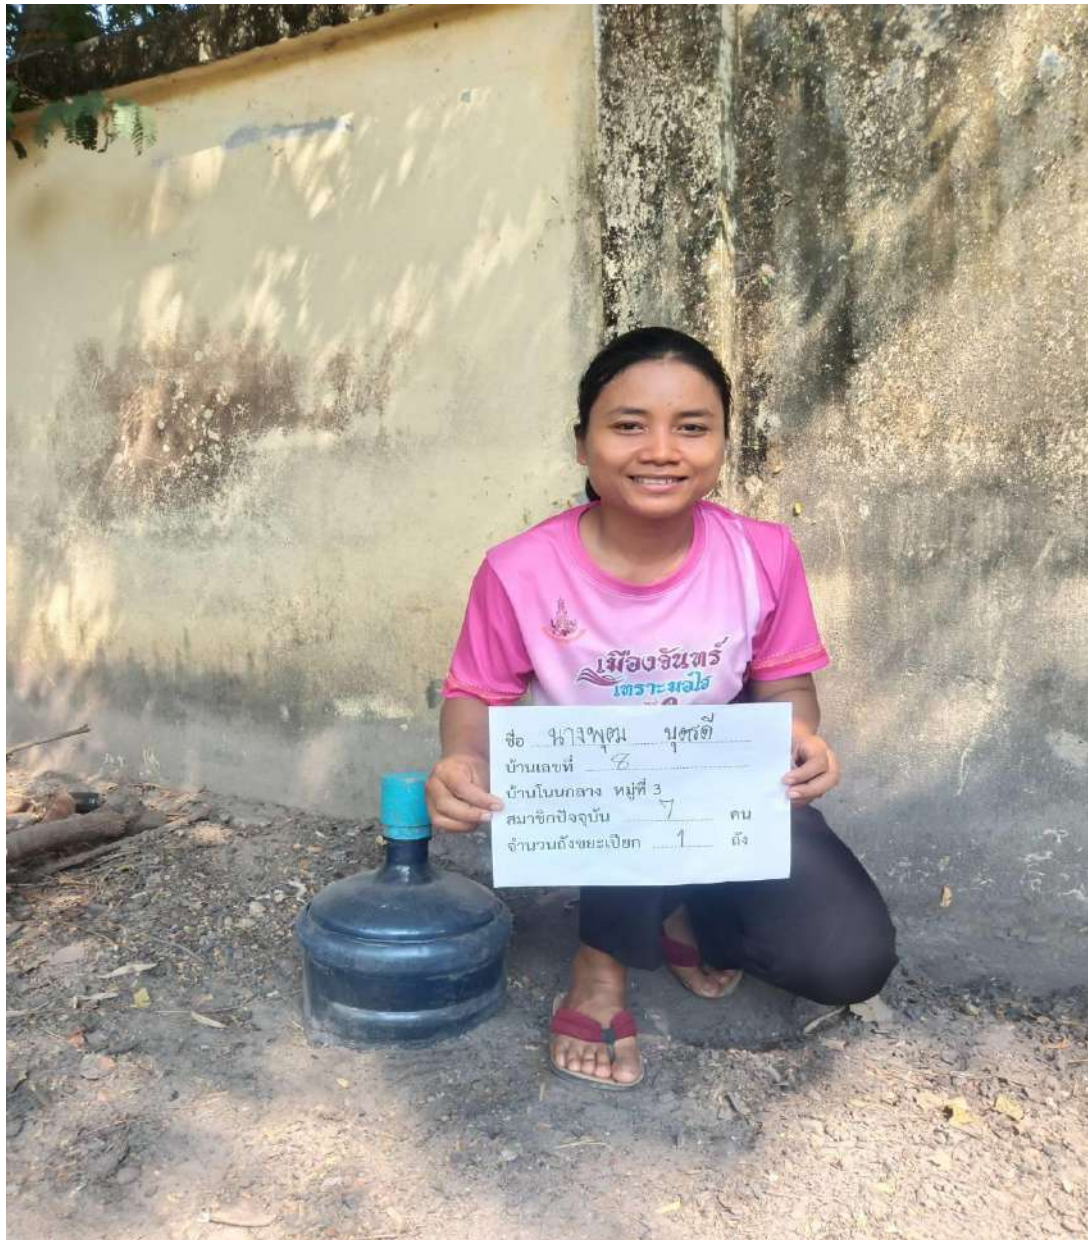 เมืองจันทร์
ชื่อ นางพุฒ บุตรดี
บ้านเลขที่ 8
บ้านโนนกลาง หมู่ที่ 3
สมาชิกปัจจุบัน 7 คน
จำนวนถังขยะเปียก 1 ถัง